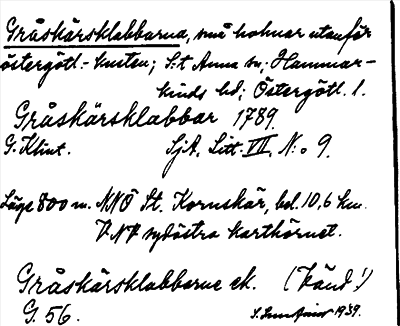 Gråskärsklabbarna, små holmar utanför
östergötl.-kusten; S:t Anna sn; Hammar-
kinds hd; Östergötl. l.
Gråskärsklabbar 1789.
G. Klint. SjA, Litt. VII, N:o 9.
Läge 800 m. NNÖ St. Kornskär, bel. 10,6 km.
VNV sydöstra karthörnet.
Gråskärsklabbarne ek. (känd!)
G. 56. 1939.